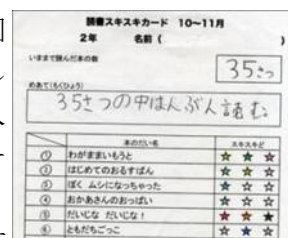 読書スキスキカード 10〜11月
2年 名前(
いままで読んだ本の数
35さつ
めあて(もくひょう)
35さつの中はんぶん読む
本のだい名 スキスキど
① わがままいもうと ☆ ☆ ☆
② はじめてのおるすばん ☆ ☆ ☆
③ ぼく ムシになっちゃった ☆ ☆ ☆
④ おかあさんのおっぱい ☆ ☆ ☆
⑤ だいじな だいじな! ★ ★ ★
⑥ ともだちごっこ ☆ ★ ☆